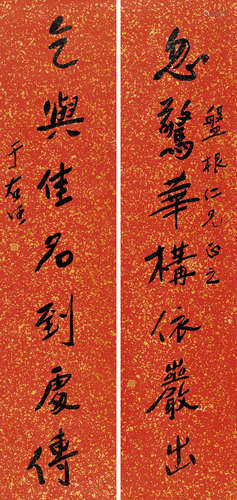 忽驚華構依巖出
盤根仁兄正之
乞與佳名到處傳
于右任